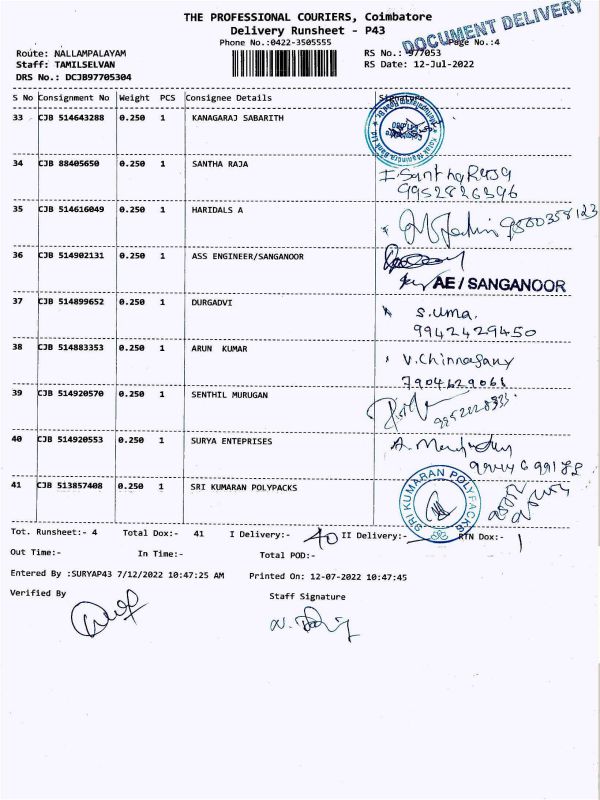 THE PROFESSIONAL COURIERS, Coimbatore
Delivery Runsheet - P43
DOCUMENT DELIVERY
Phone No.:0422-3505555
Page No.:4
Route: NALLAMPALAYAM
RS No.: 977053
Staff: TAMILSELVAN
RS Date: 12-Jul-2022
DRS No.: DCJB97705304
S No Consignment No Weight PCS Consignee Details Signature
33 CJB 514643288 0.250 1 KANAGARAJ SABARITH
34 CJB 88405650 0.250 1 SANTHA RAJA
I Santha Raja
9952826396
35 CJB 514616049 0.250 1 HARIDALS A
9500358123
36 CJB 514902131 0.250 1 ASS ENGINEER/SANGANOOR
AE / SANGANOOR
37 CJB 514899652 0.250 1 DURGADVI
S. Uma.
9942429450
38 CJB 514883353 0.250 1 ARUN KUMAR
V. Chinnasany
7904629066
39 CJB 514920570 0.250 1 SENTHIL MURUGAN
40 CJB 514920553 0.250 1 SURYA ENTEPRISES
41 CJB 513857408 0.250 1 SRI KUMARAN POLYPACKS
SRI KUMARAN POLYPACKS
Tot. Runsheet:- 4 Total Dox:- 41 I Delivery:- 40 II Delivery:- RTN Dox:- 1
Out Time:- In Time:- Total POD:-
Entered By :SURYAP43 7/12/2022 10:47:25 AM Printed On: 12-07-2022 10:47:45
Verified By Staff Signature